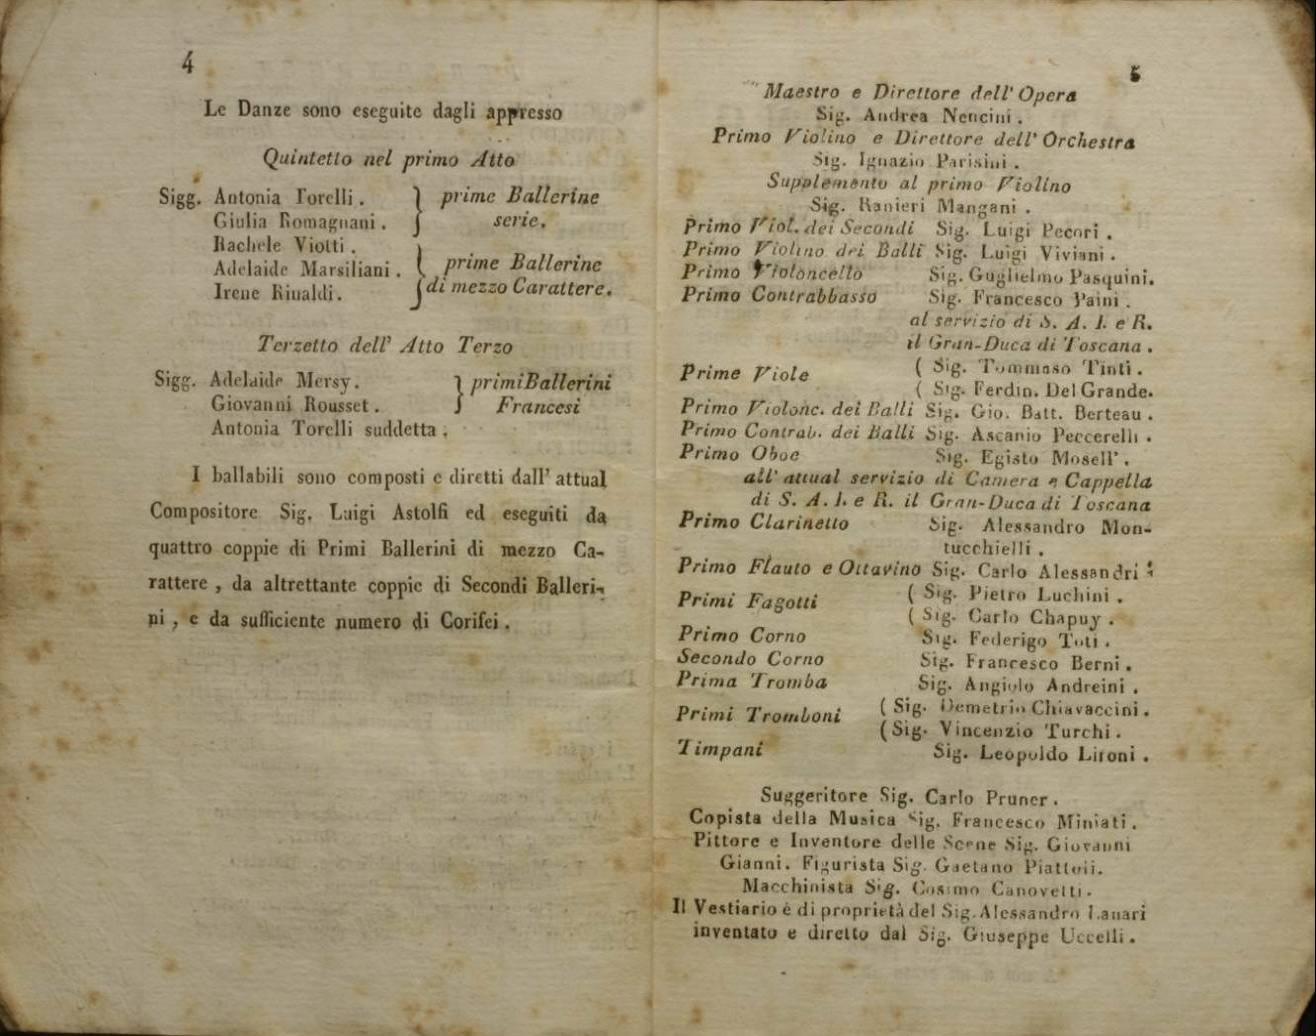 4
Le Danze sono eseguite dagli appresso
Quintetto nel primo Atto
Sigg. Antonia Torelli . } prime Ballerine
Giulia Romagnani . } serie.
Rachele Viotti .
Adelaide Marsiliani . } prime Ballerine
Irene Rinaldi . } di mezzo Carattere.
Terzetto dell' Atto Terzo
Sigg. Adelaide Mersy . } primi Ballerini
Giovanni Rousset . } Francesi
Antonia Torelli suddetta .
I ballabili sono composti e diretti dall' attual
Compositore Sig. Luigi Astolfi ed eseguiti da
quattro coppie di Primi Ballerini di mezzo Ca-
rattere , da altrettante coppie di Secondi Balleri-
ni , e da sufficiente numero di Corifei .
5
Maestro e Direttore dell' Opera
Sig. Andrea Nencini .
Primo Violino e Direttore dell' Orchestra
Sig. Ignazio Parisini .
Supplemento al primo Violino
Sig. Ranieri Mangani .
Primo Viol. dei Secondi Sig. Luigi Pecori .
Primo Violino dei Balli Sig. Luigi Viviani .
Primo Violoncello Sig. Guglielmo Pasquini.
Primo Contrabbasso Sig. Francesco Paini .
al servizio di S. A. I. e R.
il Gran-Duca di Toscana .
Prime Viole ( Sig. Tommaso Tinti .
( Sig. Ferdin. Del Grande.
Primo Violonc. dei Balli Sig. Gio. Batt. Berteau .
Primo Contrab. dei Balli Sig. Ascanio Peccerelli .
Primo Oboe Sig. Egisto Mosell' .
all' attual servizio di Camera e Cappella
di S. A. I. e R. il Gran-Duca di Toscana
Primo Clarinetto Sig. Alessandro Mon-
tucchielli .
Primo Flauto e Ottavino Sig. Carlo Alessandri .
Primi Fagotti ( Sig. Pietro Luchini .
( Sig. Carlo Chapuy .
Primo Corno Sig. Federigo Toti .
Secondo Corno Sig. Francesco Berni .
Prima Tromba Sig. Angiolo Andreini .
Primi Tromboni ( Sig. Demetrio Chiavaccini .
( Sig. Vincenzio Turchi .
Timpani Sig. Leopoldo Lironi .
Suggeritore Sig. Carlo Pruner .
Copista della Musica Sig. Francesco Miniati .
Pittore e Inventore delle Scene Sig. Giovanni
Gianni. Figurista Sig. Gaetano Piattoli.
Macchinista Sig. Cosimo Canovetti .
Il Vestiario è di proprietà del Sig. Alessandro Lanari
inventato e diretto dal Sig. Giuseppe Uccelli .